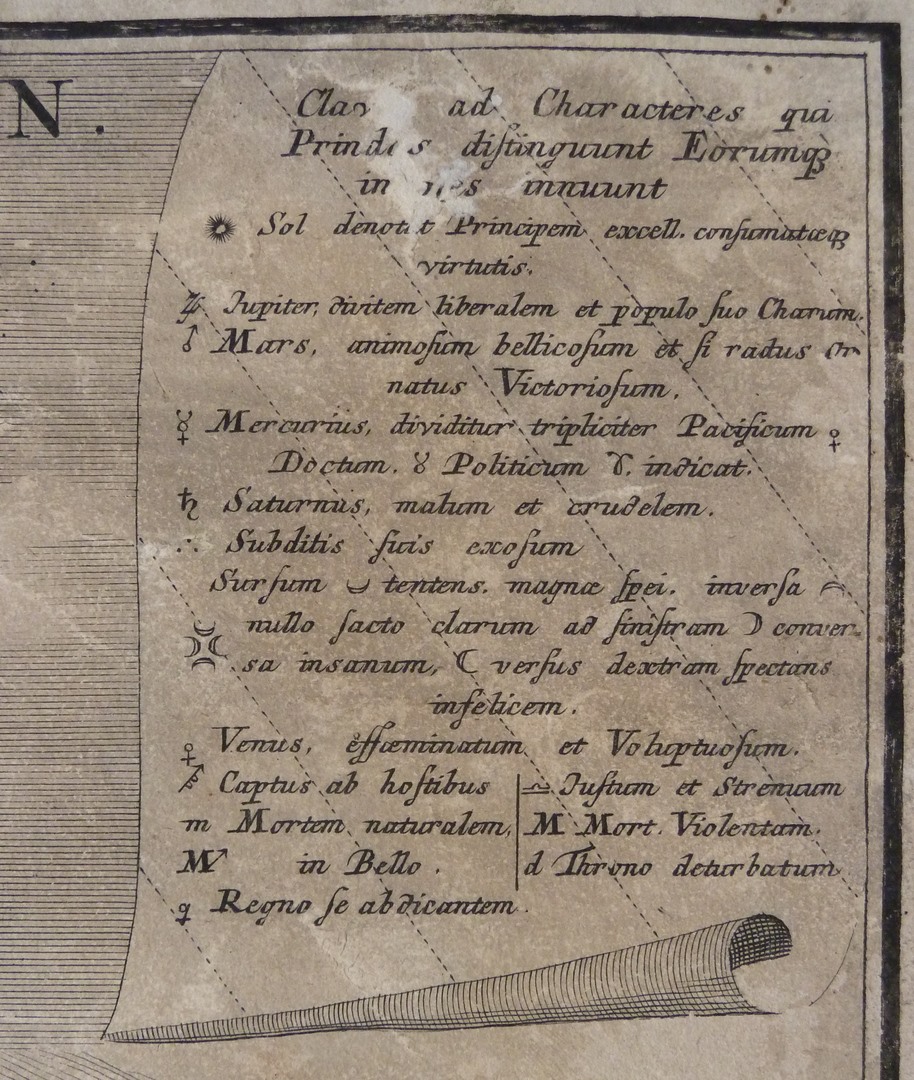 N.
ad Characteres qui
diſtinguunt Eorumqꝫ
innuunt
Sol denotat Principem excell. conſumatæqꝫ
virtutis.
♃ Iupiter, divitem liberalem et populo ſuo Charum.
♂ Mars, animoſum bellicoſum et ſi radus or
natus Victorioſum.
☿ Mercurius, dividitur tripliciter Pacificum ♀
Doctum. ♉ Politicum ♈. indicat.
♄ Saturnus, malum et crudelem.
∴ Subditis ſuis exoſum
Surſum ◡ tentens. magnæ ſpei. inverſa ◠
nullo facto clarum ad ſiniſtram ☽ conver-
sa insanum, ☾ verſus dextram ſpectans
infelicem.
♀ Venus, effœminatum et Voluptuoſum.
Captus ab hoſtibus
m Mortem naturalem,
M in Bello.
q Regno ſe abdicantem.
♎ Iuſtum et Strenuum
M Mort. Violentam.
d Throno deturbatum